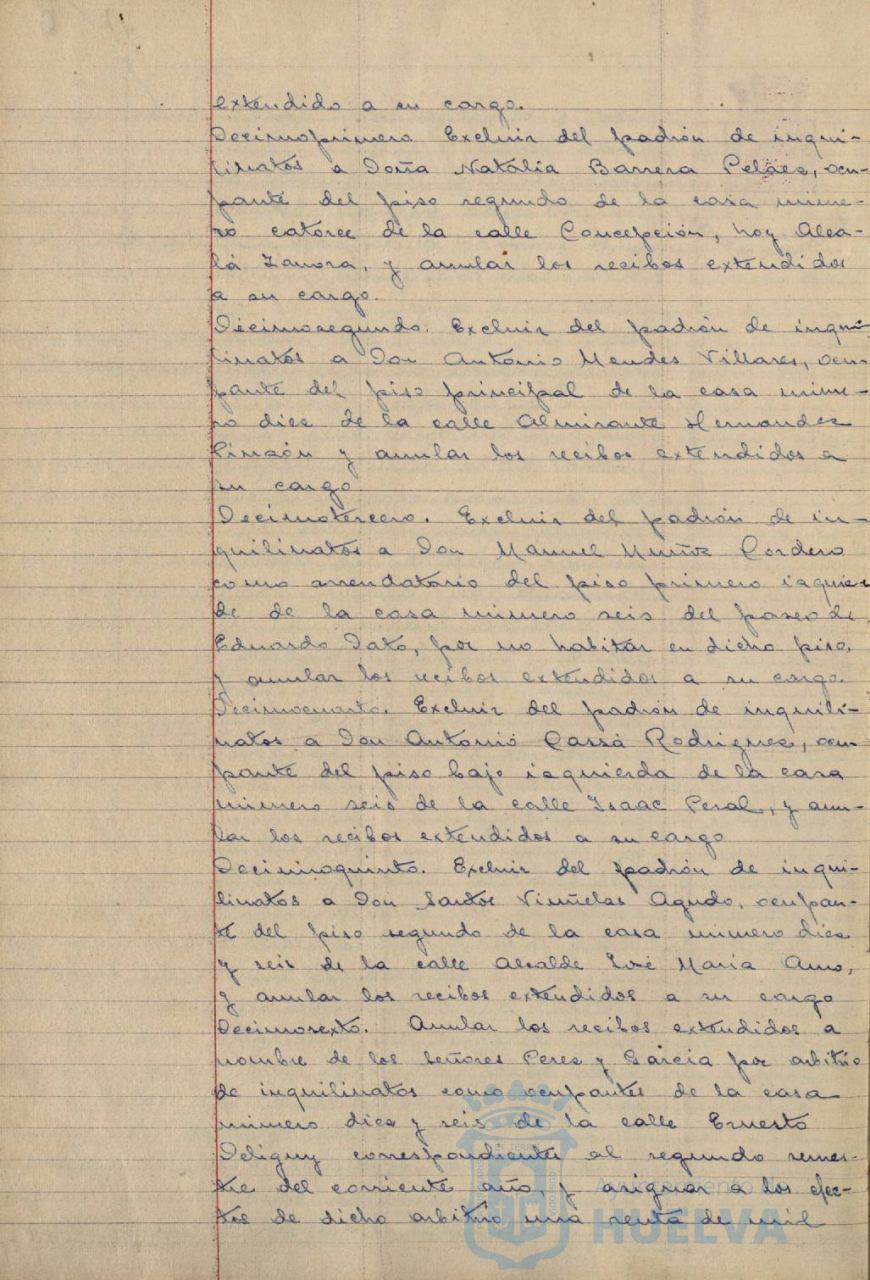 extendido a su cargo.
Decimoprimero Excluir del padrón de inqui-
linatos a Doña Natalia Barrera Pelaez, ocu-
pante del piso segundo de la casa núme-
ro catorce de la calle Concepción, hoy Alca-
lá Zamora, y anular los recibos extendidos
a su cargo.
Décimosegundo. Excluir del padrón de inqui-
linatos a Don Antonio Mendes Villares, ocu-
pante del piso principal de la casa núme-
ro diez de la calle Almirante Hernandez
Pinzón y anular los recibos extendidos a
su cargo.
Decimotercero. Excluir del padrón de in-
quilinatos a Don Manuel Muñoz Cordero
como arrendatario del piso primero izquier
de de la casa número seis del paseo de
Eduardo Dato, por no habitar en dicho piso,
y anular los recibos extendidos a su cargo.
Decimocuarto. Excluir del padrón de inquili-
natos a Don Antonio Carrá Rodriguez, ocu-
pante del piso bajo izquierda de la casa
número seis de la calle Isaac Peral, y anu-
lar los recibos extendidos a su cargo
Decimoquinto. Excluir del padrón de inqui-
linatos a Don Santos Viñuelas Agudo, ocupan-
te del piso segundo de la casa número diez
y seis de la calle Alcalde José María Amo,
y anular los recibos extendidos a su cargo
Decimosexto. Anular los recibos extendidos a
nombre de los Señores Perez y García por arbitrio
de inquilinatos como ocupantes de la casa
número diez y seis de la calle Ernesto
Deligny correspondientes al segundo semes-
tre del corriente año, y asignar a los efec-
tos de dicho arbitrio una renta de mil
Ayuntamiento de
HUELVA